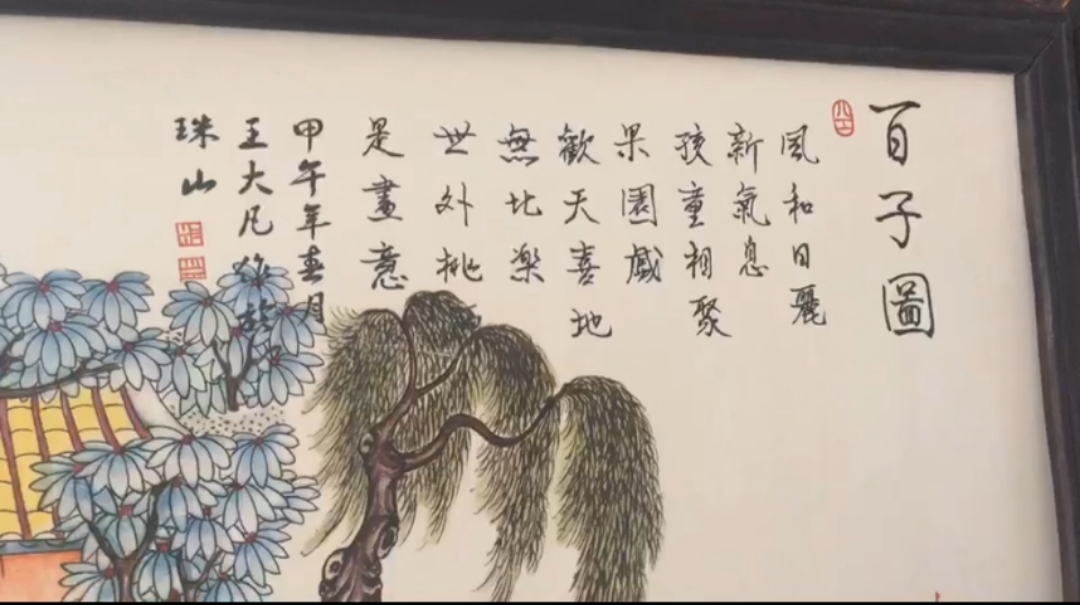 百子圖
風和日麗
新氣息
孩童相聚
果園戲
歡天喜地
無比樂
世外桃
是畫意
甲午年春月
王大凡作於
珠山